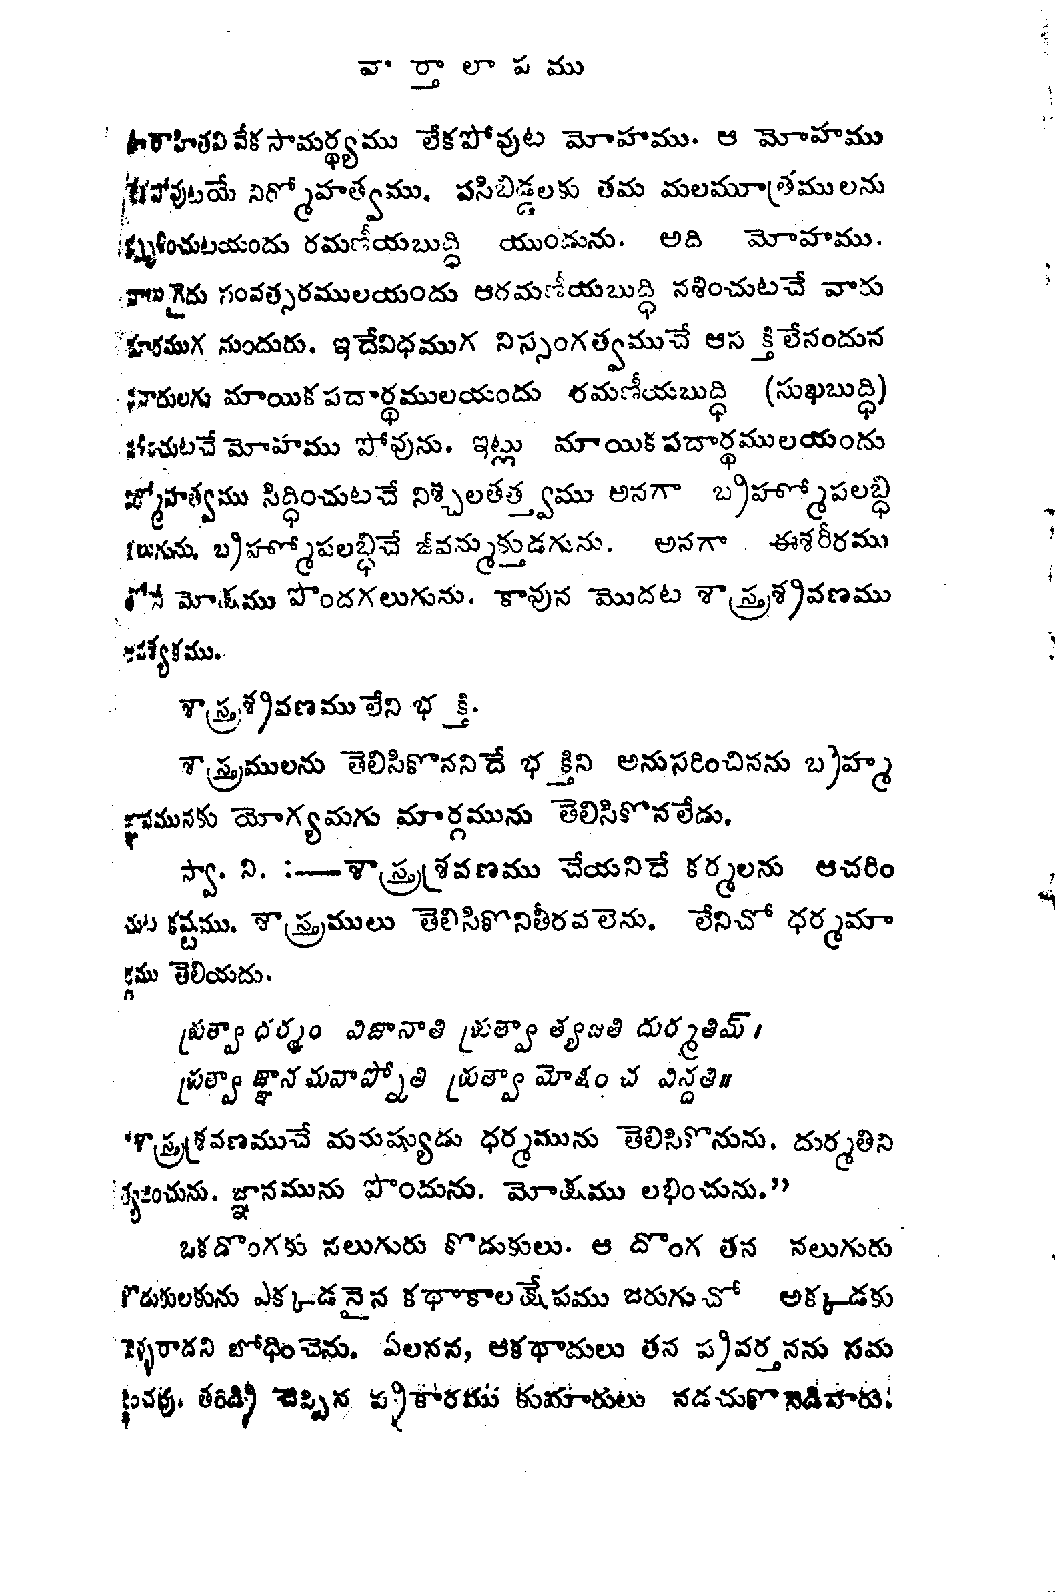 వార్తాలాపము
హితాహితవివేకసామర్థ్యము లేకపోవుట మోహము. ఆ మోహము
లేకపోవుటయే నిర్మోహత్వము. పసిబిడ్డలకు తమ మలమూత్రములను
స్పృశించుటయందు రమణీయబుద్ధి యుండును. అది మోహము.
నాలుగైదు సంవత్సరములయందు ఆరమణీయబుద్ధి నశించుటచే వారు
దూరముగ నుందురు. ఇదేవిధముగ నిస్సంగత్వముచే ఆస క్తిలేనందున
దారాదులగు మాయికపదార్థములయందు రమణీయబుద్ధి (సుఖబుద్ధి)
నశించుటచే మోహము పోవును. ఇట్లు మాయికపదార్థములయందు
ర్మోహత్వము సిద్ధించుటచే నిశ్చలతత్త్వము అనగా బ్రహ్మోపలబ్ధి
కలుగును. బ్రహ్మోపలబ్ధిచే జీవన్ముక్తుడగును. అనగా ఈశరీరము
తోనే మోక్షము పొందగలుగును. కావున మొదట శాస్త్రశ్రవణము
ఆవశ్యకము.
శాస్త్రశ్రవణములేని భ క్తి.
శాస్త్రములను తెలిసికొననిదే భ క్తిని అనుసరించినను బ్రహ్మ
జ్ఞానమునకు యోగ్యమగు మార్గమును తెలిసికొనలేడు.
స్వా. ని. :—శాస్త్రశ్రవణము చేయనిదే కర్మలను ఆచరిం
చుట కష్టము. శాస్త్రములు తెలిసికొనితీరవలెను. లేనిచో ధర్మమా
ర్గము తెలియదు.
శ్రుత్వా ధర్మం విజానాతి శ్రుత్వా త్యజతి దుర్మతిమ్।
శ్రుత్వా జ్ఞానమవాప్నోతి శ్రుత్వా మోక్షం చ విన్దతి॥
“శాస్త్రశ్రవణముచే మనుష్యుడు ధర్మమును తెలిసికొనును. దుర్మతిని
త్యజించును. జ్ఞానమును పొందును. మోక్షము లభించును.”
ఒకదొంగకు నలుగురు కొడుకులు. ఆ దొంగ తన నలుగురు
కొడుకులకును ఎక్కడనైన కథాకాలక్షేపము జరుగుచో అక్కడకు
వెళ్ళరాదని బోధించెను. ఏలనన, ఆకథాదులు తన ప్రవర్తనను సమ
ర్థించవు. తండ్రి చెప్పిన ప్రకారము కుమారులు నడచుకొనెడివారు.